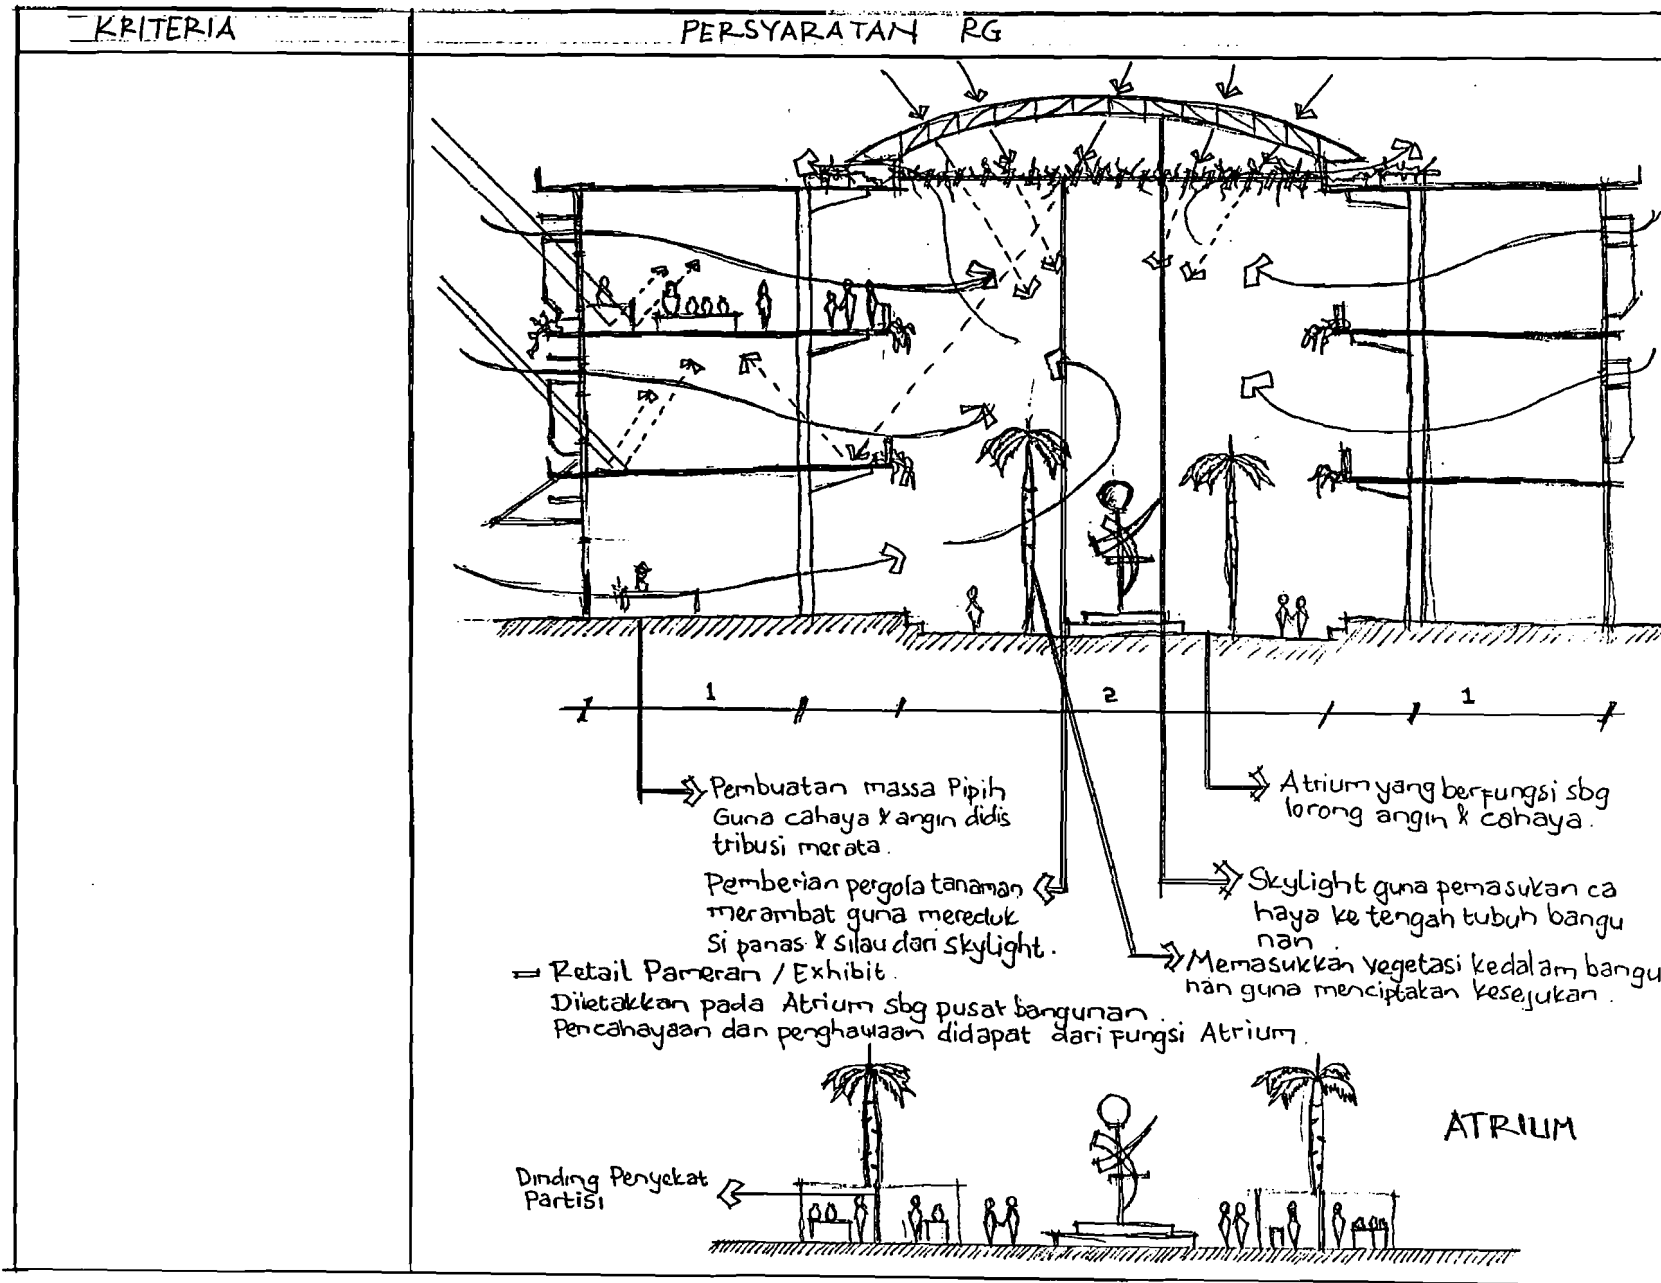 KRITERIA
PERSYARATAN RG
1
2
1
Pembuatan massa Pipih
Guna cahaya & angin didis
tribusi merata.
Pemberian pergola tanaman
merambat guna mereduk
si panas & silau dari skylight.
Atrium yang berfungsi sbg
lorong angin & cahaya.
Skylight guna pemasukan ca
haya ke tengah tubuh bangu
nan.
Memasukkan vegetasi kedalam bangu
nan guna menciptakan kesejukan.
= Retail Pameran / Exhibit.
Diletakkan pada Atrium sbg pusat bangunan.
Pencahayaan dan penghawaan didapat dari fungsi Atrium.
ATRIUM
Dinding Penyekat
Partisi